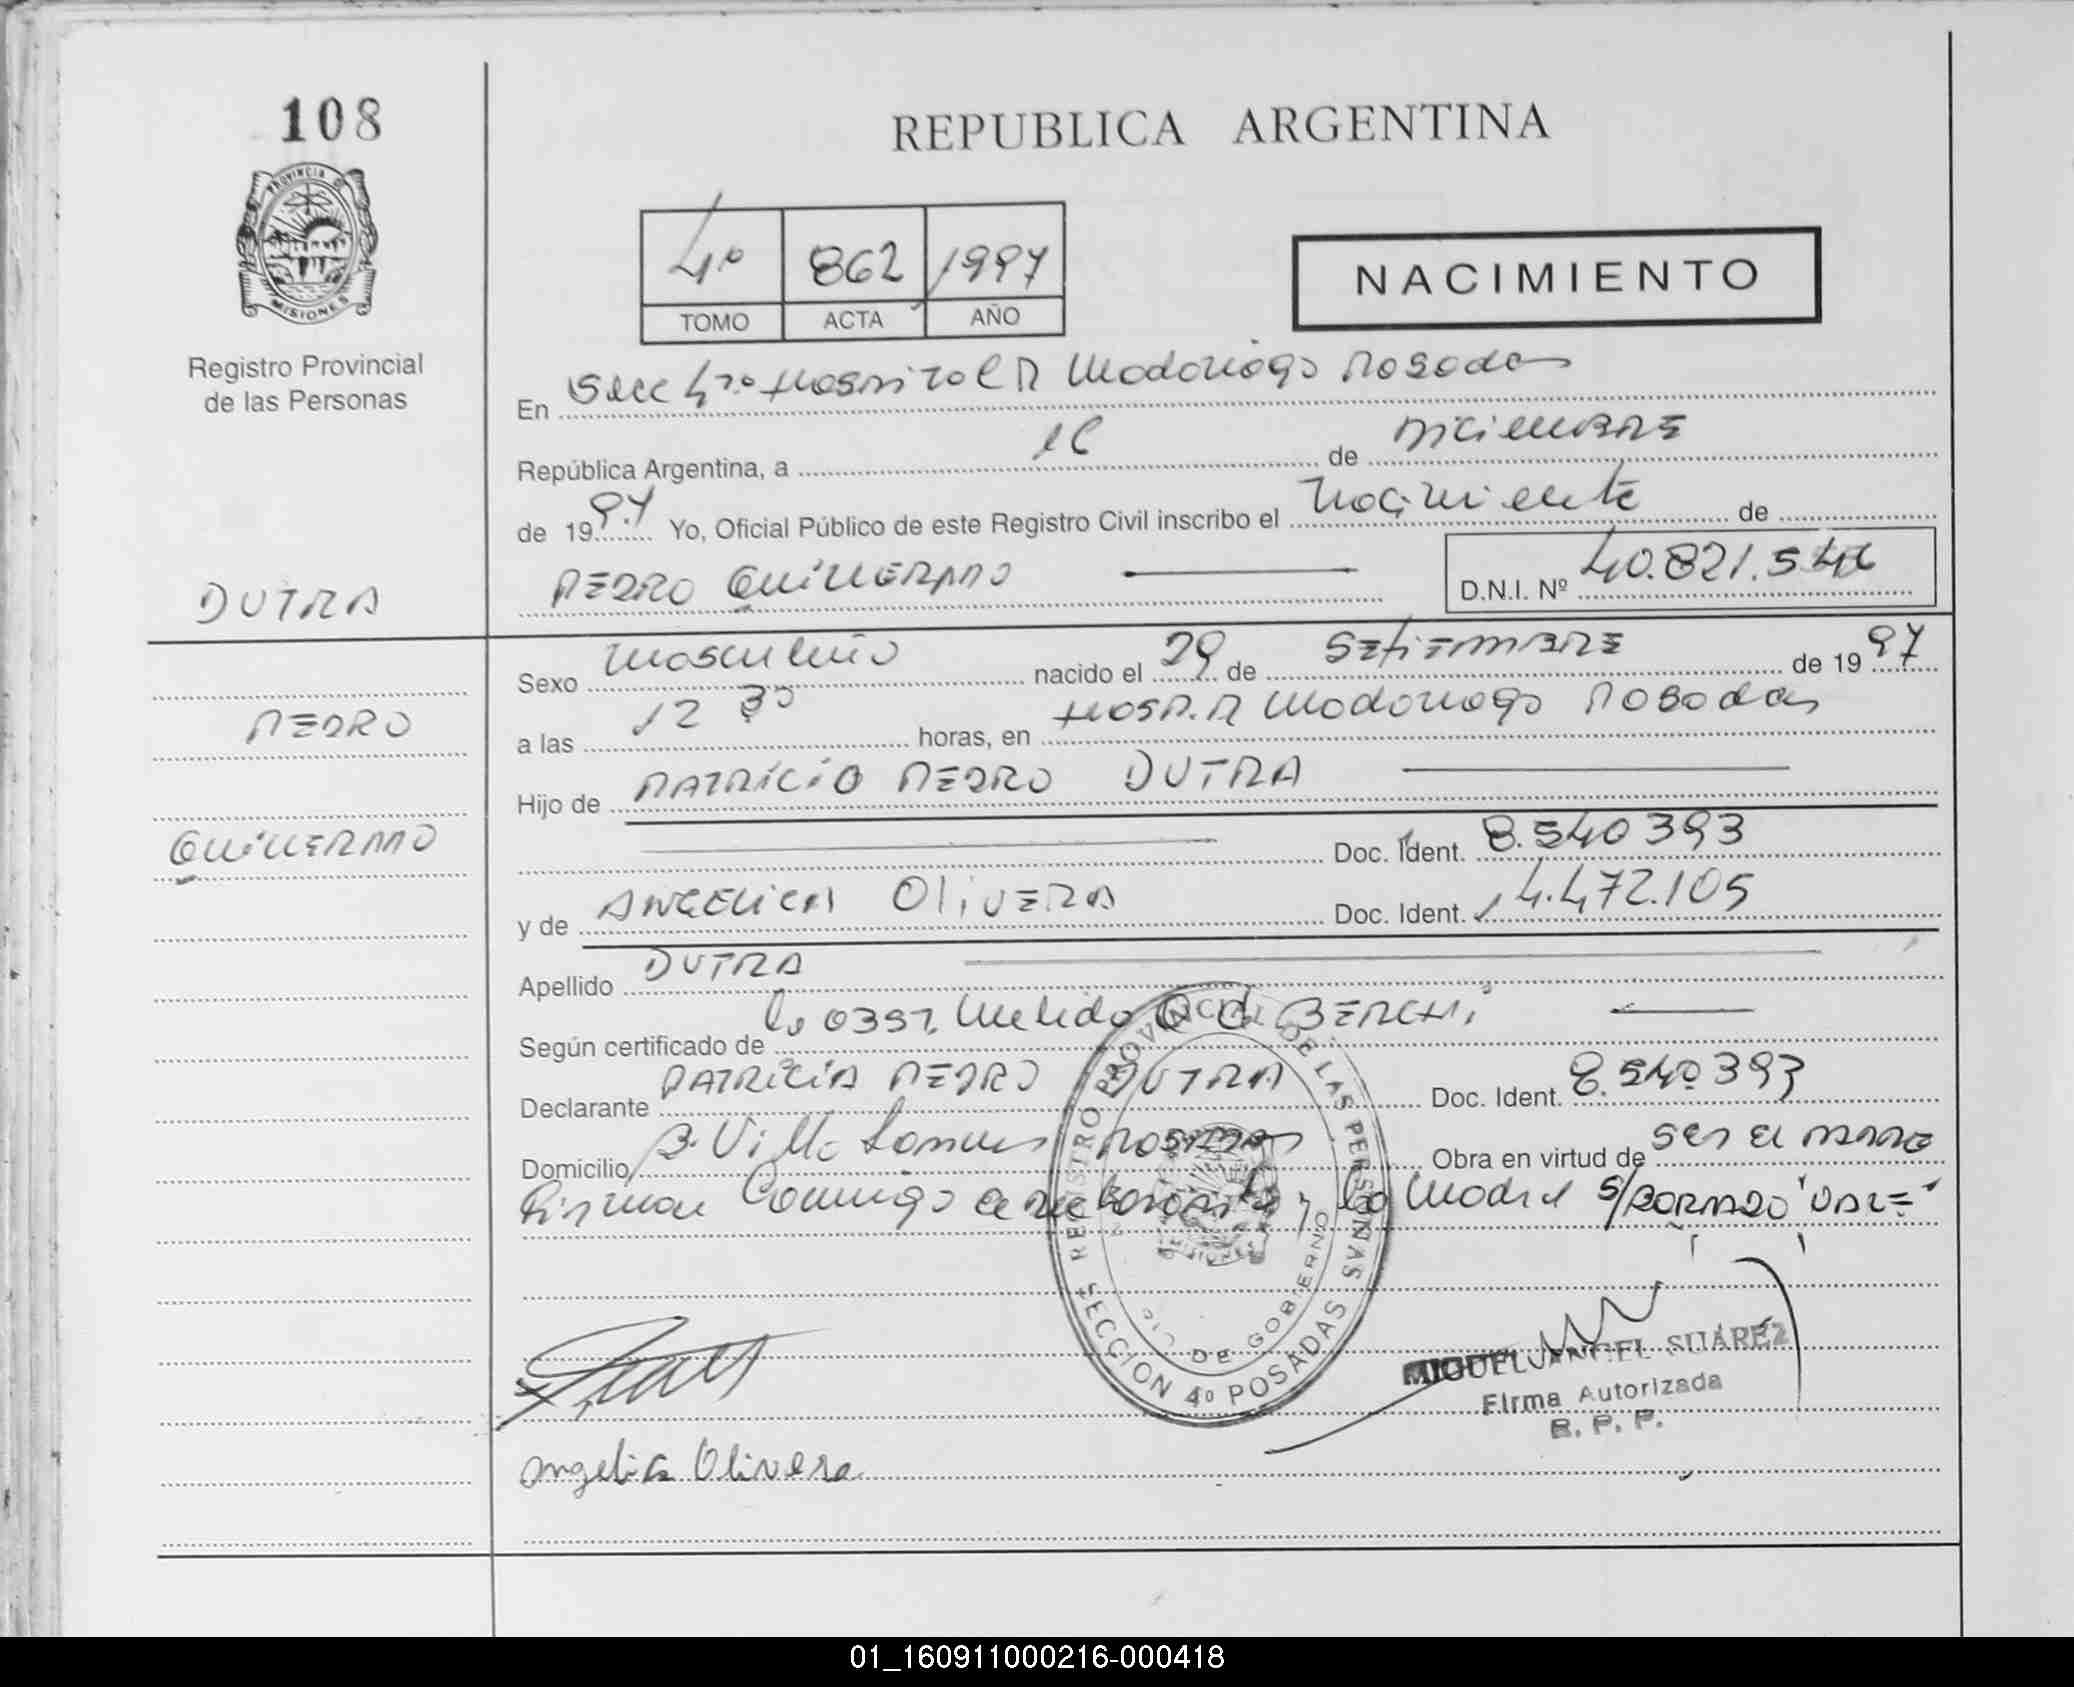 108
REPUBLICA ARGENTINA
PROVINCIA DE
MISIONES
Registro Provincial
de las Personas
4º 862 1997
TOMO ACTA AÑO
NACIMIENTO
En Secc 4ta Hospital R Madariaga Posadas
República Argentina, a de DICIEMBRE
de 1997 Yo, Oficial Público de este Registro Civil inscribo el Nacimiento de
DUTRA
PEDRO GUILLERMO D.N.I. Nº 40.821.546
Sexo Masculino nacido el 29 de SETIEMBRE de 1997
PEDRO
a las 12 30 horas, en HOSP. R Madariaga Posadas
Hijo de PATRICIO PEDRO DUTRA
GUILLERMO
Doc. Ident. 8.540393
y de ANGELICA OLIVERA Doc. Ident. 14.472.105
Apellido DUTRA
Según certificado de la OBST. Melida O d BERCHI
Declarante PATRICIO PEDRO DUTRA Doc. Ident. 8.540393
Domicilio B. Villa Posadas Obra en virtud de SER EL PADRE
Firman Conmigo y la Madre S/BORRADO "VALE"
REGISTRO PROVINCIAL DE LAS PERSONAS
DE GOBIERNO
MISIONES
SECCION 4º POSADAS
MIGUEL ANGEL SUÁREZ
Firma Autorizada
R. P. P.
Angelica Olivera
01_160911000216-000418